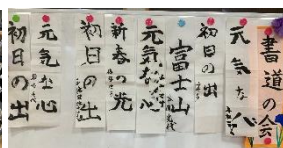 書道の会
元気な心
初日の出
富士山
元気な心
新春の光
初日の出
元気な心
初日の出